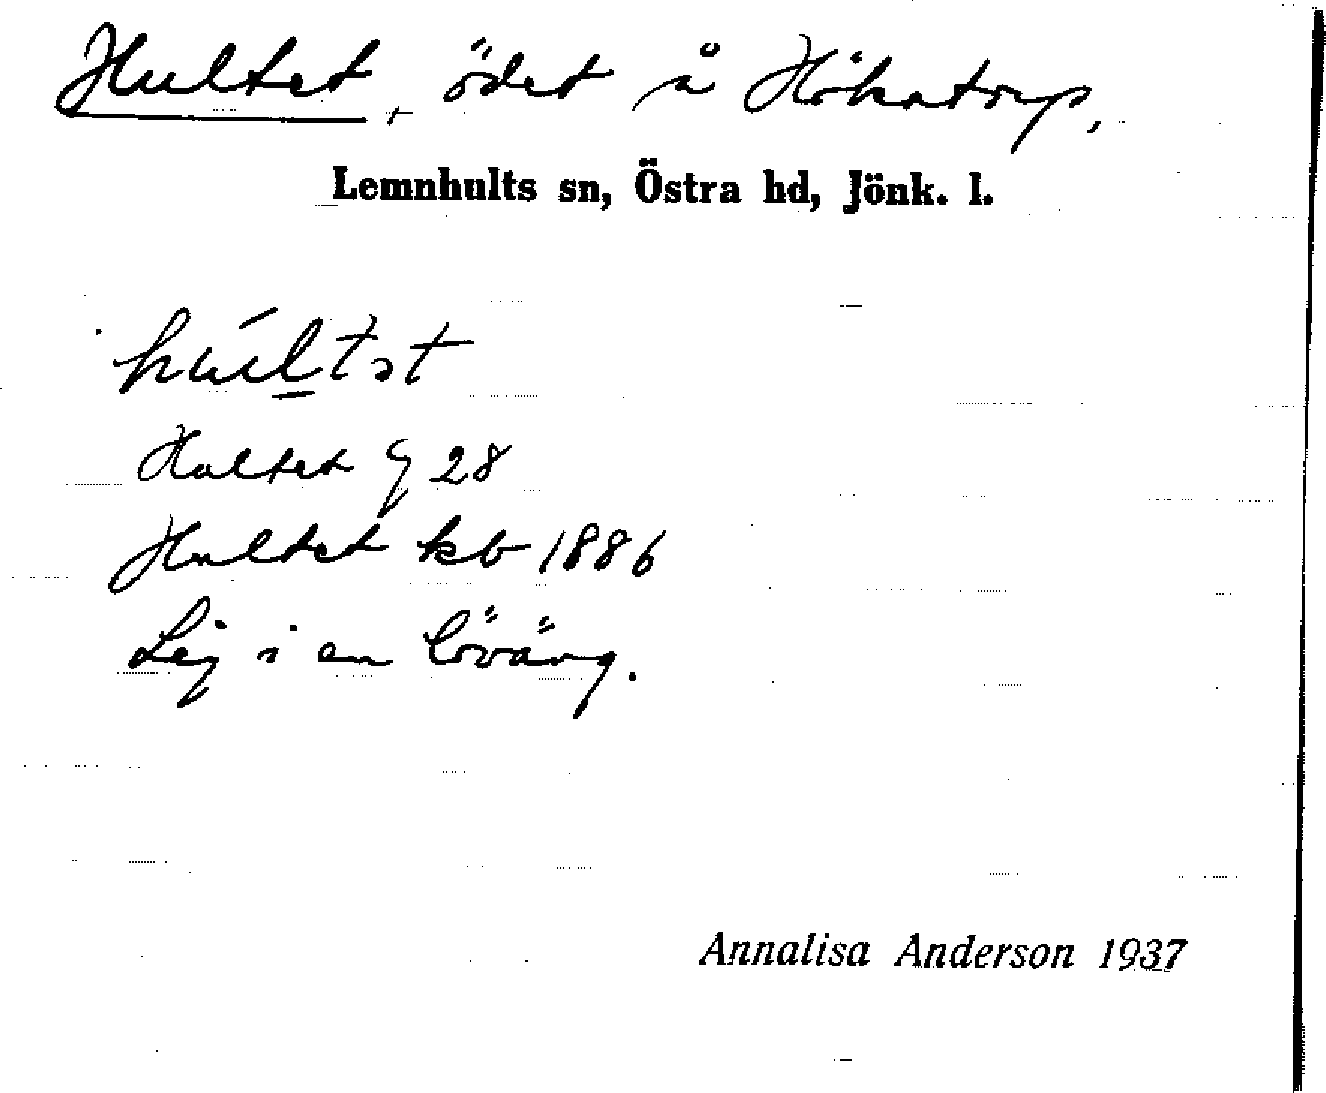 Hultet, ödet å Hökatorp,
Lemnhults sn, Östra hd, Jönk. l.
húltət
Hultet G 28
Hultet kb 1886
Låg i en löväng.
Annalisa Anderson 1937